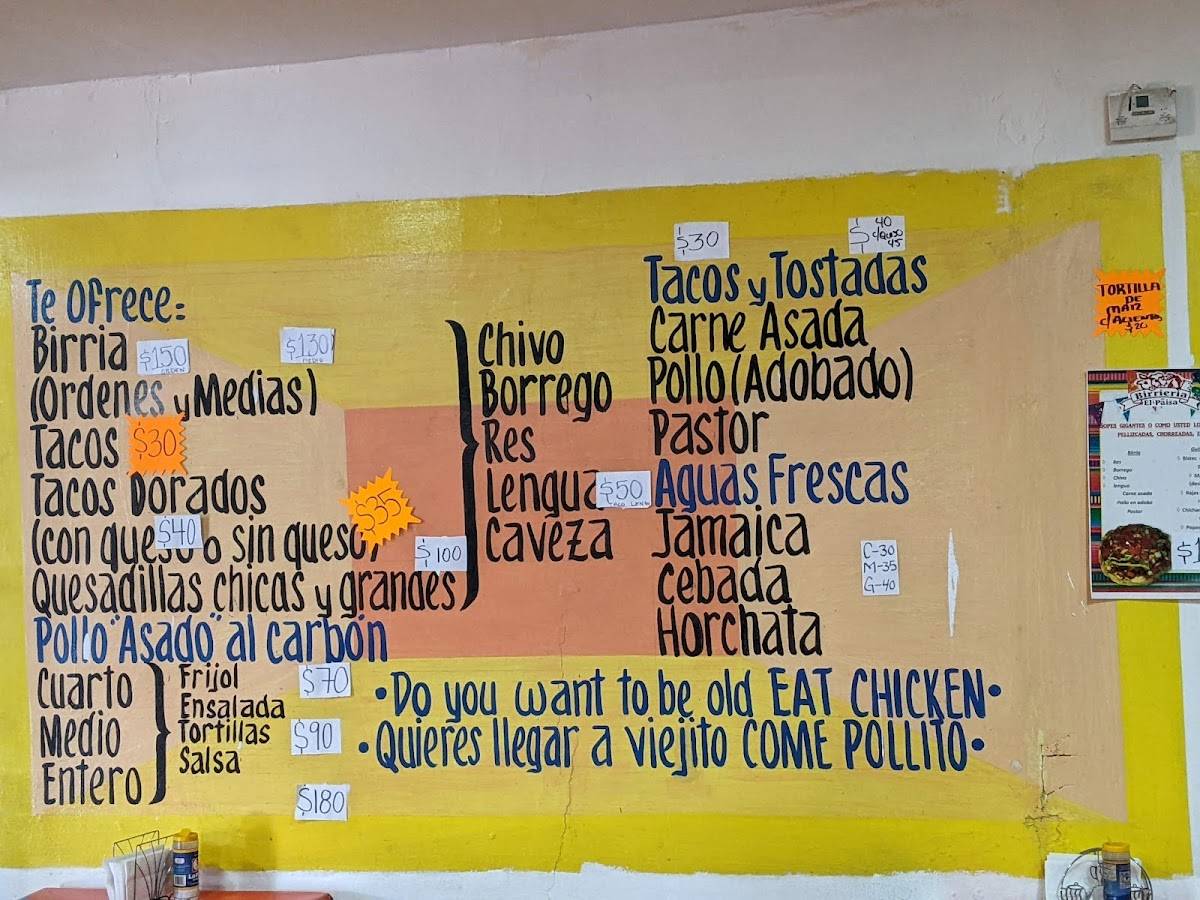 Te Ofrece=
Birria $150 ORDEN $130 MEDIA
(Ordenes y Medias)
Tacos $30
Tacos Dorados
(con queso o sin queso) $40 $35
Quesadillas chicas y grandes $100
Chivo
Borrego
Res
Lengua $50
Caveza
Pollo "Asado" al carbón
Cuarto
Medio
Entero
Frijol
Ensalada
Tortillas
Salsa
$70
$90
$180
$30
$40 c/queso 45
Tacos y Tostadas
Carne Asada
Pollo (Adobado)
Pastor
Aguas Frescas
Jamaica
Cebada
Horchata
C-30
M-35
G-40
•Do you want to be old EAT CHICKEN•
•Quieres llegar a viejito COME POLLITO•
TORTILLA
DE
MAIZ
$20
Birrieria
El Paisa
PELLIZCADAS, CHORREADAS,
Birria
Res
Borrego
Chivo
lengua
Carne asada
Pollo en adobo
Pastor
$1